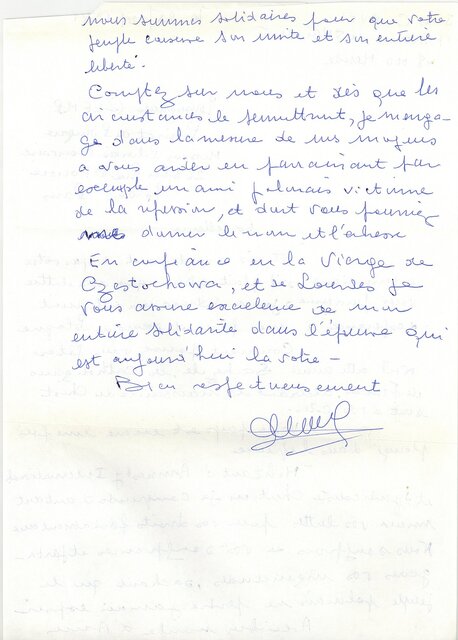 nous sommes solidaires pour que votre
peuple conserve son unité et son entière
liberté.
Comptez sur nous et dès que les
circonstances le permettront, je m'enga-
ge dans la mesure de mes moyens
a vous aider en parrainant par
exemple un ami polonais victime
de la répression, et dont vous pourriez
donner le nom et l'adresse
En confiance en la Vierge de
Czestochowa, et de Lourdes je
vous assure excellence de mon
entière solidarité dans l'épreuve qui
est aujourd'hui la votre -
Bien respectueusement